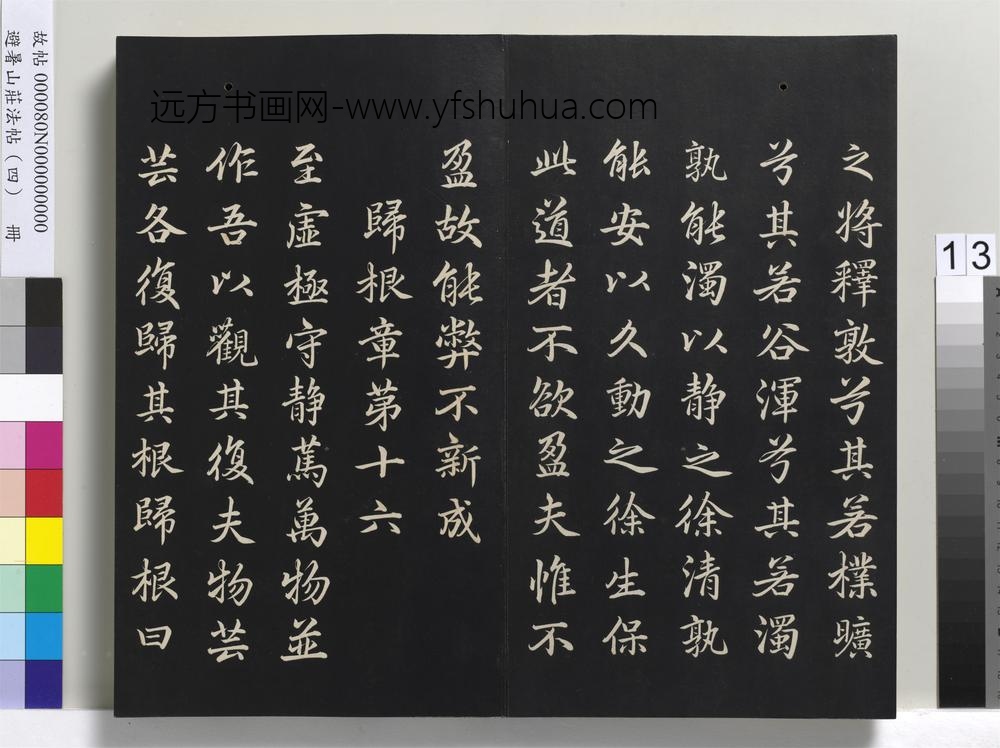 之將釋敦兮其若樸曠
兮其若谷渾兮其若濁
孰能濁以靜之徐清孰
能安以久動之徐生保
此道者不欲盈夫惟不
盈故能弊不新成
歸根章第十六
至虛極守靜篤萬物並
作吾以觀其復夫物芸
芸各復歸其根歸根曰
远方书画网-www.yfshuhua.com
故帖 000080N000000000
避暑山莊法帖（四） 冊
13